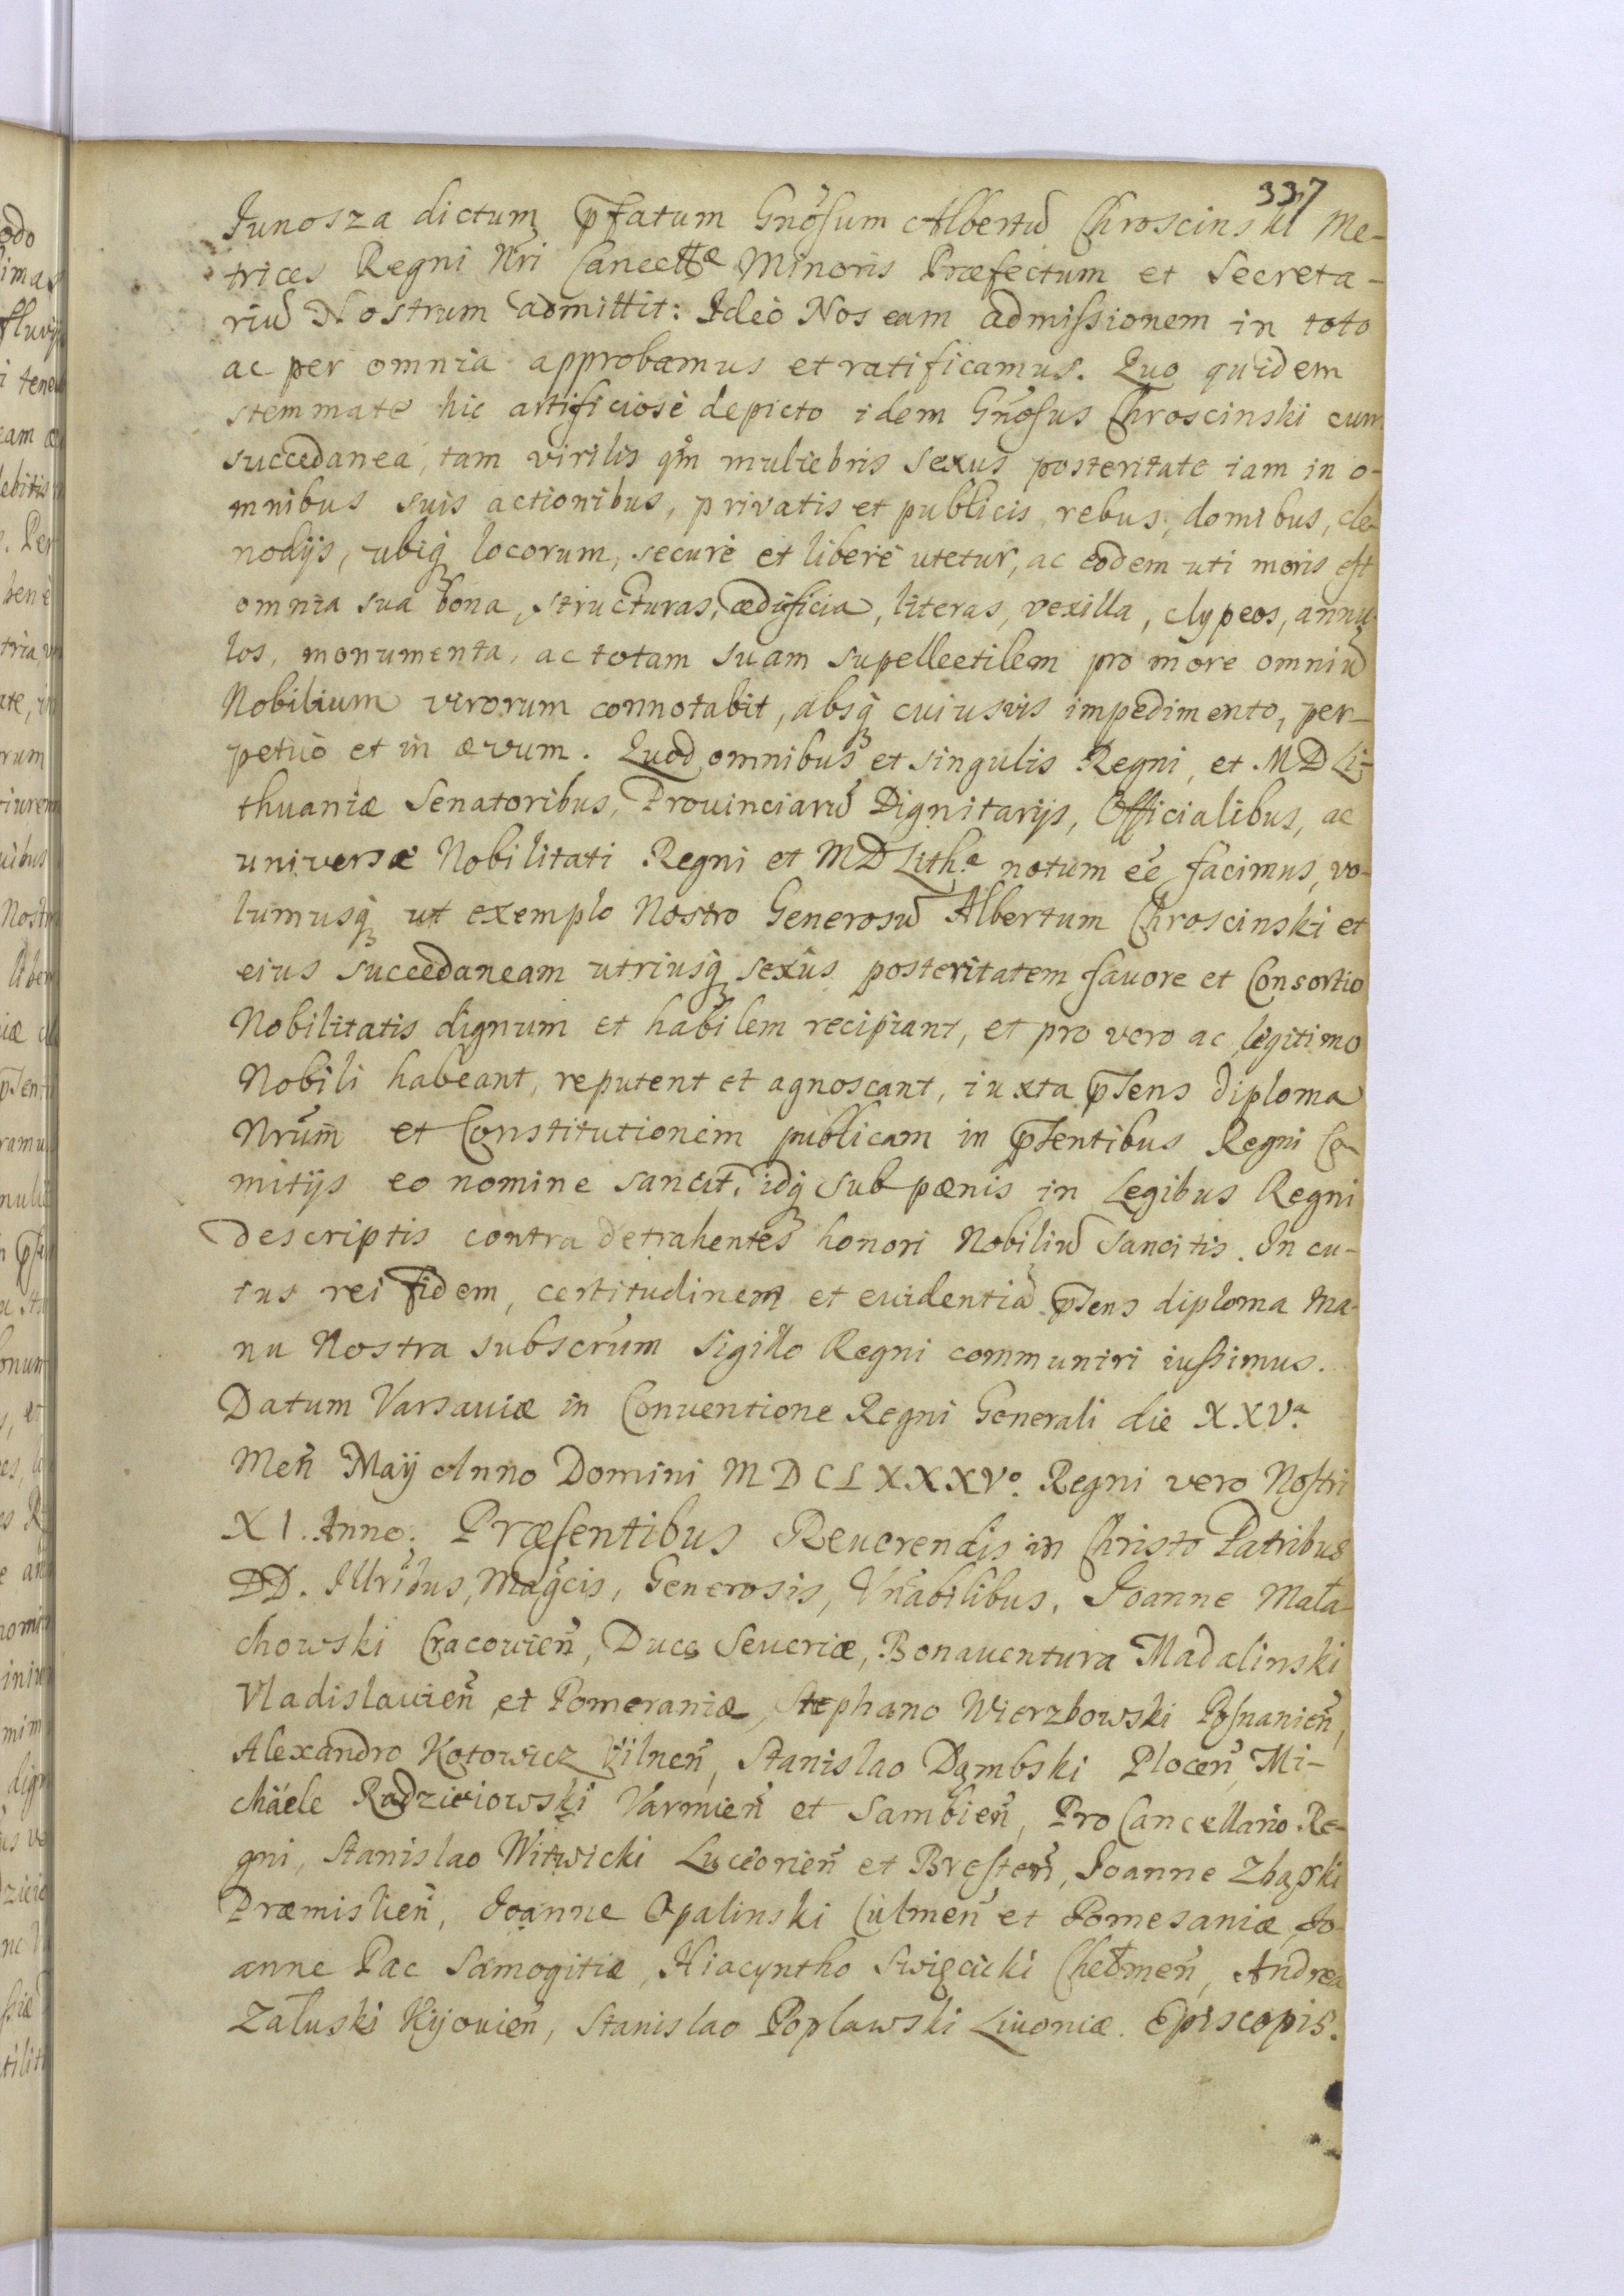 337
Junosza dictum p̄fatum Gnōsum Albertū Chroscinski Me-
trices Regni Nrī Cancellæ Minoris Præfectum et Secreta-
riū Nostrum admittit: Ideò Nos eam admissionem in toto
ac per omnia approbamus et ratificamus. Quo quidem
stemmate hic artificiosè depicto idem Gnōsus Chroscinski cum
succedanea, tam virilis qm̄ muliebris sexus posteritate iam in o-
mnibus suis actionibus, privatis et publicis rebus, domibus, cle-
nodijs, ubiq̨ locorum, securè et liberè utetur, ac eodem uti moris est
omnia sua bona, structuras, ædificia, literas, vexilla, clypeos, annu-
los, monumenta, ac totam suam supellectilem pro more omniū
Nobilium virorum connotabit, absq̨ cuiusvis impedimento, per-
petuò et in ævum. Quod omnibus et singulis Regni, et MD Li-
thuaniæ Senatoribus, Prouinciarū Dignitarijs, Officialibus, ac
universæ Nobilitati Regni et MD Lith:æ notum eē facimus, vo-
lumusq̨ ut exemplo Nostro Generosū Albertum Chroscinski et
eius succedaneam utriusq̨ sexus posteritatem favore et Consortio
Nobilitatis dignum et habilem recipiant, et pro vero ac legitimo
Nobili habeant, reputent et agnoscant, iuxta p̄sens diploma
Nrūm et Constitutionem publicam in p̄sentibus Regni Co-
mitijs eo nomine sancit. idq̨ sub pœnis in Legibus Regni
descriptis contra detrahentes honori Nobiliū sancitis. In cu-
ius rei fidem, certitudinem et euidentiā p̄sens diploma Ma-
nu Nostra subscrūm Sigillo Regni communiri iussimus.
Datum Varsauiæ in Conuentione Regni Generali die XXV.a
Men̄ Maij Anno Domini MDCLXXXV.o Regni vero Nostri
XI. Anno. Præsentibus Reuerendis in Christo Patribus
DD. Illrībus, Magcīs, Generosis, Vn̄abilibus, Joanne Mała-
chowski Cracouien̄, Duce Seueriæ, Bonauentura Madalinski
Vladislauien̄ et Pomeraniæ, Stephano Wierzbowski Posnanien̄,
Alexandro Kotowicz Vilnen̄, Stanislao Dąmbski Plocen̄, Mi-
chäele Radzieiowski Varmien̄ et Sambien̄, Pro Cancellario Re-
gni, Stanislao Witwicki Luceorien̄ et Bresten̄, Joanne Zbąski
Præmislien̄, Joanne Opalinski Culmen̄ et Pomesaniæ, Jo-
anne Pac Samogitiæ, Hiacyntho Swięcicki Chełmen̄, Andrea
Załuski Kijouien̄, Stanislao Poplawski Liuoniæ. Episcopis.